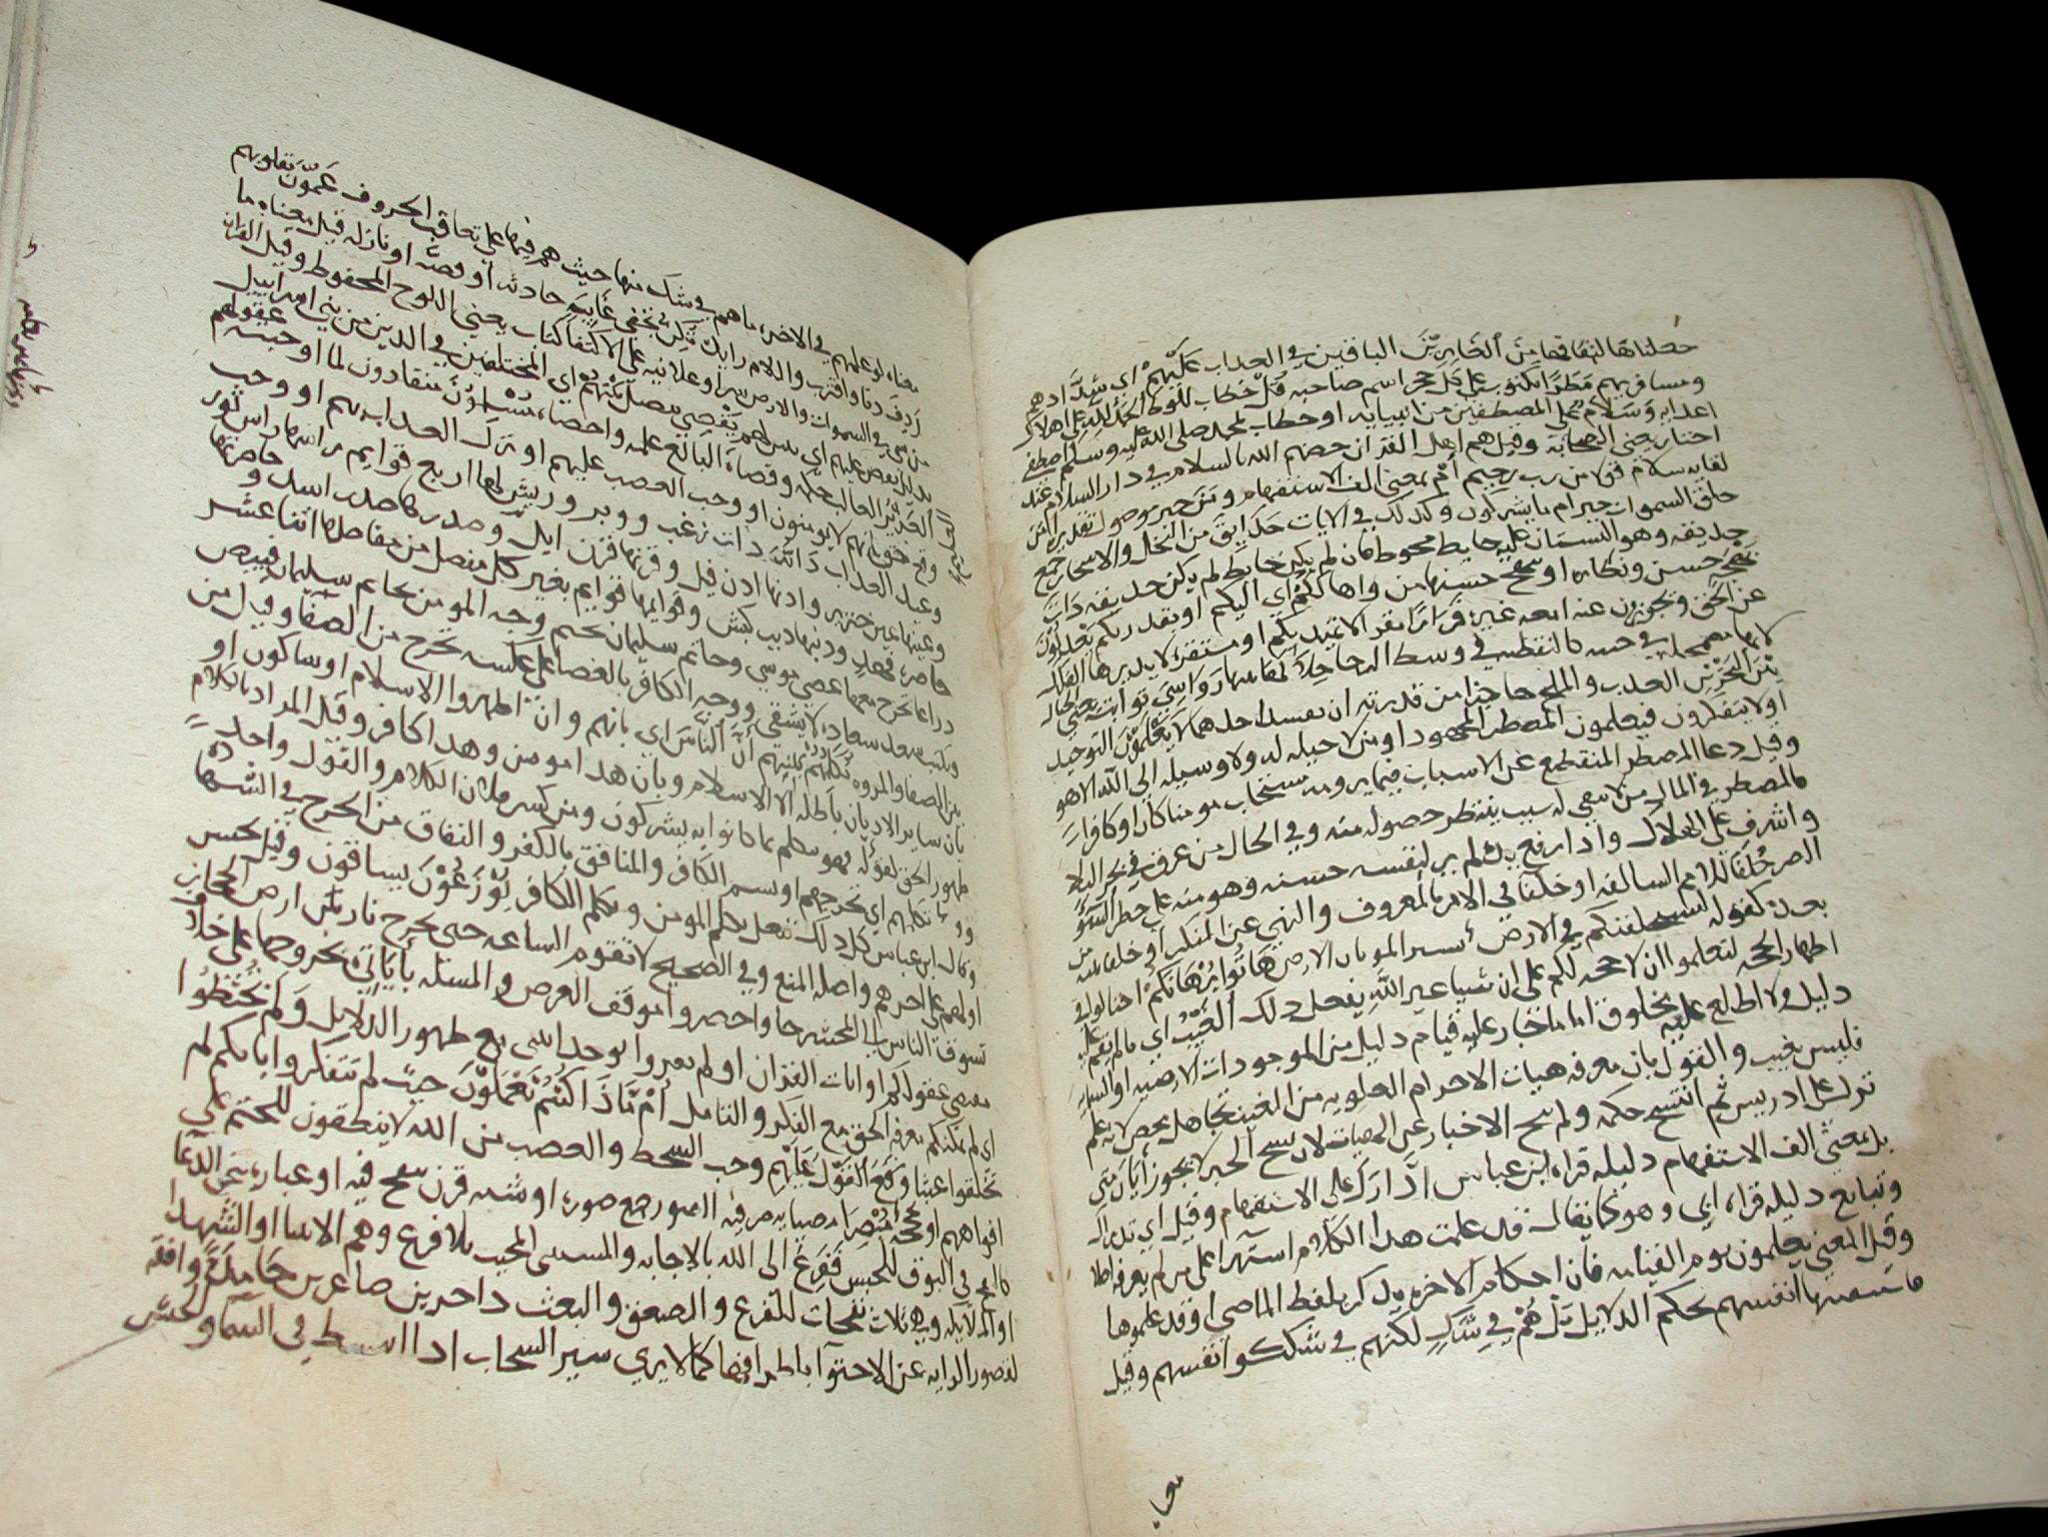 جعلناها لنفاقها من الغابرين الباقين في العذاب عليهم اي شدادهم
ومسافريهم مطرا مكتوب على كل حجر اسم صاحبه قل خطاب للوط الحمد لله على هلاك
اعدايه وسلام على المصطفين من انبيايه او خطاب لمحمد صلى الله عليه وسلم اصطفى
اختار يعني الصحابة وقيل هم اهل القران خصهم الله بالسلام في دار السلام عند
لقايه سلام قولا من رب رحيم ام بمعنى الف الاستفهام ومن خبر موصول تقديره امن
خلق السموات خير ام ما يشركون وكذلك في الايات حدايق من النخل والاشجار جمع
حديقه وهو البستان عليه حايط محوط فان لم يكن حايط لم يكن حديقه ذات
بهجه حسن ونظاره او يبهج حسنها من راها لكم اي اليكم او بقدر بكم يعدلون
عن الحق ويجوزون عنه اىعه غيره قرارا مقر الا تميد بكم او مستقره لا يديرها الفلك
لانها في كالنقطه في وسط خلالها رواسي ثوابت يعني الجبال
بين البحرين العذب والملح حاجزا من قدرته ان يفسد احدهما لا يعلمون التوحيد
او لا يتفكرون فيعلمون المضطر المجهود او من لا حيله له ولا وسيله الى الله الا هو
وقيل دعا المضطر المنقطع عن الاسباب فيما يرومه يستجاب مومنا كان او كافرا
فالمضطر في المال من لا يبقى له سبب ينتظر حصوله منه وفي الحال من غرق في بحر البلا
واشرف على الهلاك واذا رفع يده لم ير لنفسه حسنه وهو منه على خطر السو
الضر خلفا للامم السالفه او خلفا في الامر بالمعروف والنهي عن المنكر او خلفا منه من
بعده كقوله ليستخلفنكم في الارض الارض هاتوا برهانكم
اظهار الحجه لتعلموا ان لا حجه لكم على ان شيا غير الله يفعل ذلك الغيب اي ما لم يقم عليه
دليل ولا اطلع عليه مخلوق اما ما اخبار عليه قيام دليل من الموجودات الارضيه او السمايه
فليس بغيب والقول بان معرفه هيات الاجرام العلويه من الغيب تجاهل محض لانه علم
نزل على ادريس ثم انتسخ حكمه ولم ينسخ الاخبار عن المغيبات لان نسخ الخبر لا يجوز ايان متى
بل بمعنى الف الاستفهام دليله قراه ابن عباس ادارك على الاستفهام وقيل اي تدارك
وتتابع دليله قراه ابي وهو كما يقال قد علمت هذا الكلام استهزا على من لم يعرف اصلا
وقيل المعنى يعلمون يوم القيامه فان احكام الاخره يذكر بلفظ الماضي او قد علموها
بحكم الدلايل بل هم في شك لكنهم في شككوا انفسهم وقيل
معناه لو علمهم في الاخره ما هم في شك منها حيث هم فيها على تعاقب الحروف عمون بقلوبهم
ردف دنا واقترب واللام زايد تكن تخفي غايبه حادثه او قصه او نازله قيل معناه ما
من شي في السموات والارض سرا او علانيه على الاكتفا كتاب يعني اللوح المحفوظ وقيل القران
بدليل يقص عليهم اي بين لهم يقضي يفصل بينهم اي المختلفين في الدين من بني اسراييل
العزيز الغالب حكمه وقضاه البالغ علمه واحصاه مسلمون منقادون لما اوجبته عقولهم
وقع حق بانهم لا يومنون او وجب الغضب عليهم او ترك العذاب بهم او وجب
وعد العذاب دابة ذات زغب ووبر وريش لها اربع قوايم راسها راس ثور
وعينها عين خنزير واذنها اذن فيل وقرنها قرن ايل وصدرها صدر اسد وخاصرتها
خاصره فهد وذنبها ذنب كبش وقوايمها قوايم بعير كل مفصل من مفاصلها اثنا عشر
ذراعا تخرج معها عصى موسى وخاتم سليمان تختم وجه المومن بخاتم سليمان فيبيض
وتكتب سعد سعاده لا يشقى ووجه الكافر بالعصا على عكسه تخرج من الصفا وقيل من
بين الصفا والمروه تكلمهم ان الناس اي بانهم وان اظهروا الاسلام او ساكون او
بان ساير الاديان باطله الا الاسلام وبان هذا مومن وهذا كافر وقيل المراد بالكلام
ظهور الحق لقوله فهو يتكلم بما كانوا به يشركون ومن كسر فلان الكلام والقول واحد
تكلمهم اي تجرحهم او يسم الكافر والمنافق بالكفر والنفاق من الجرح في الشي
وقال ابن عباس كل ذلك تفعل يكلم المومن ويكلم الكافر يوزعون يساقون وقيل يحبس
اولهم على اخرهم واصله المنع وفي الصحيح لا تقوم الساعه حتى يخرج نار من ارض الحجاز
تسوق الناس الى المحشر جاوا حضروا موقف العرض والمسئله باياتي
القران او لم يقروا ظهور الدلايل ولم تحيطوا
اي لم يمكنكم معرفه الحق مع الفكر والتامل ام ماذا كنتم تعملون حيث لم تتفكروا
تخلقوا عبثا وقع القول عليهم وجب السخط والغضب من الله لا ينطقون للختم على
افواههم او عجم الصور جمع صوره او شبه قرن ينفخ فيه او عباره عن الدعا
في البوق للحبس ففزع الى الله بالاجابه والمستثنى المجيب بلا فزع وهم الانبيا او الشهدا
او الملايكه وهي ثلاث نفخات للفزع والصعق والبعث داخرين صاغرين جامدة واقفه
لقصور الرايه عن الاحتوا باطرافها كما لا يرى سير السحاب اذا انبسط في السما